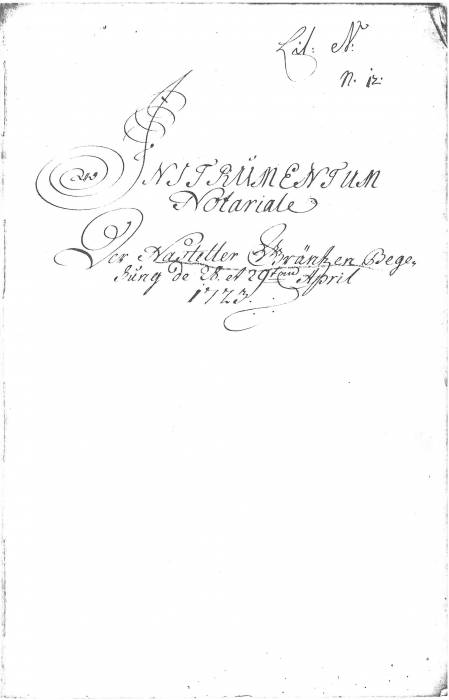 Lit: N:
N. 12:
INSTRÜMENTUM
Notariale
Der Nastetter Gräntzen Bege-
hung de 28. et 29ten April
1723.